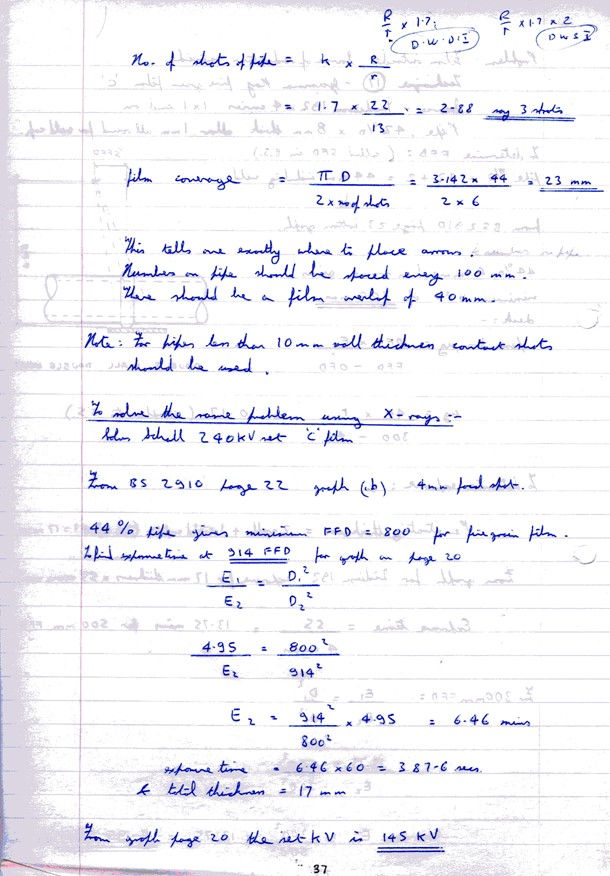 R/r × 1.7 :
D.W.D.I
R/r × 1.7 × 2
D W S I
No. of shots of pipe = k × R/r
= 1.7 × 22/13 = 2.88 say 3 shots
film coverage = π D / 2 × no of shots = 3.142 × 44 / 2 × 6 = 23 mm
This tells one exactly where to place arrows.
Numbers on pipe should be spaced every 100 mm.
There should be a film overlap of 40 mm.
Note: For pipes less than 10 mm wall thickness contact shots
should be used.
To solve the same problem using X-rays :-
Schall 240 KV set 'C' film
From BS 2910 page 22 graph (b) 4mm focal spot.
44 % pipe gives minimum FFD = 800 for fine grain film.
To find exposure time at 914 FFD for graph on page 20
E1/E2 = D1²/D2²
4.95/E2 = 800²/914²
E2 = 914²/800² × 4.95 = 6.46 mins
exposure time = 6.46 × 60 = 387.6 secs.
& total thickness = 17 mm
From graph page 20 the set KV is 145 KV
37